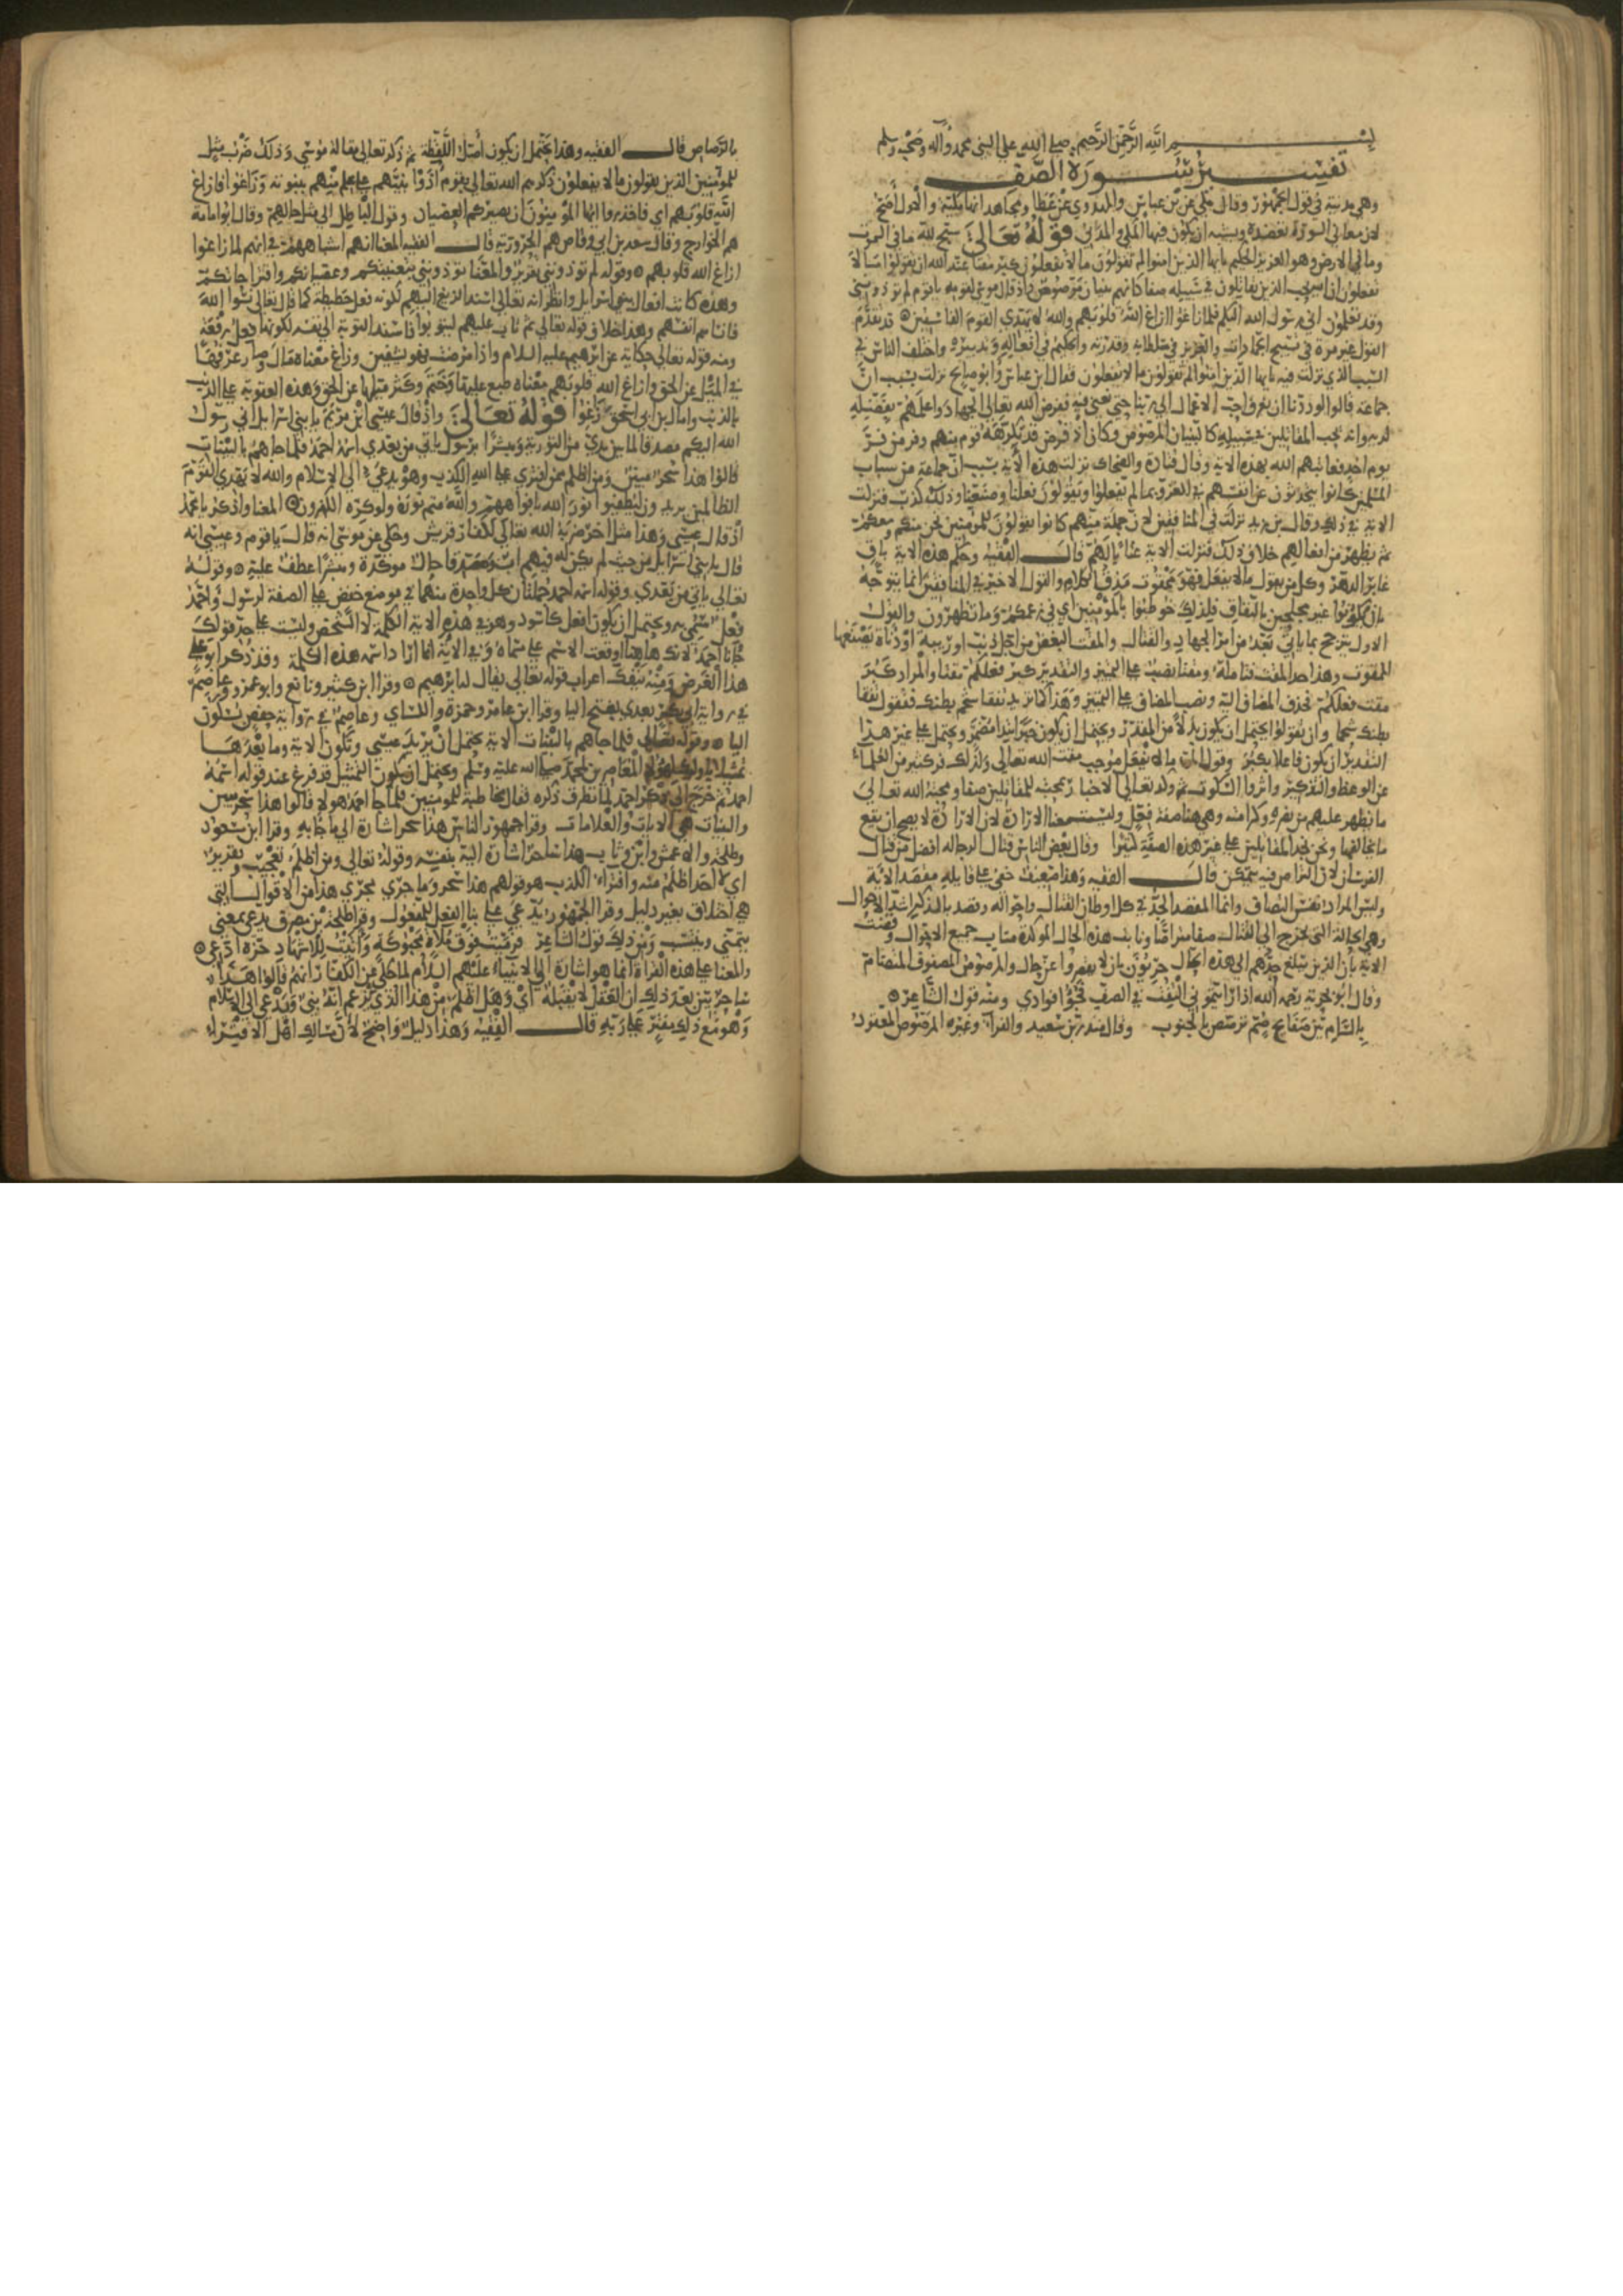 بسم الله الرحمن الرحيم صلى الله على النبي محمد وآله وصحبه وسلم
تفسير سورة الصف
وهي مدنية في قول الجمهور وقال مكي عن بن عباس والمهدوي عن عطا ومجاهد انها مكية والاول أصح
لان معاني السورة تعضده ويشبه ان يكون فيها المكي والمدني قوله تعالى سبح لله ما في السموت
وما في الارض وهو العزيز الحكيم يايها الذين امنوا لم تقولون ما لا تفعلون كبر مقتا عند الله ان تقولوا ما لا
تفعلون ان الله يحب الذين يقاتلون في سبيله صفا كانهم بنيان مرصوص واذ قال موسى لقومه ياقوم لم تؤذونني
وقد تعلمون اني رسول الله اليكم فلما زاغوا ازاغ الله قلوبهم والله لا يهدي القوم الفاسقين قد تقدم
القول غير مرة في تسبيح الجمادات والعزيز في سلطانه وقدرته والحكيم في افعاله وتدبيره واختلف الناس في
السبب الذي نزلت فيه يايها الذين امنوا لم تقولون ما لا تفعلون فقال ابن عباس وابو صالح نزلت بسبب ان
جماعة قالوا لوددنا ان نعرف احب الاعمال الى ربنا حتى نعنى فيه ففرض الله تعالى الجهاد واعلمهم بفضله
لديه وانه يحب المقاتلين في سبيله كالبنيان المرصوص وكان اذ فرض قد تكرهه قوم منهم وفر من فر
يوم احد فعاتبهم الله بهذه الاية وقال قتادة والضحاك نزلت هذه الاية بسبب ان جماعة من شباب
المسلمين كانوا يتحدثون عن انفسهم في الغزو بما لم يفعلوا ويقولون فعلنا وصنعنا وذلك كذب فنزلت
الاية في ذلك وقال بن زيد نزلت في المنافقين لان جملة منهم كانوا يقولون للمومنين نحن منكم ومعكم
ثم يظهر من افعالهم خلاف ذلك فنزلت الاية عتابا لهم قال الفقيه وحكم هذه الاية باق
غابر الدهر وكل من يقول ما لا يفعل فهو ممقوت مذق الكلام والقول الاخر في المنافقين انما يتوجه
بان يكونوا غير مجلحين بالنفاق فلذلك خوطبوا بالمومنين اي في زعمكم وما تظهرون والقول
الاول يترجح بما ياتي بعد من امر الجهاد والقتال والمقت البغض من اجل ذنب اوريبة او دناة يصنعها
الممقوت وهذا حد المقت فتامله ومقتا نصب على التمييز والتقدير كبر فعلكم مقتا والمراد كبر
مقت فعلكم فحذف المضاف اليه ونصب المضاف على التمييز وهذا كما تريد تفقا شحم بطنك فتقول تفقا
بطنك شحما وان تقولوا يحتمل ان يكون بدلا من المقدر ويحتمل ان يكون خبر ابتدا مضمر ويحتمل على غير هذا
التقدير ان يكون فاعلا بكبر وقول المرء ما لا يفعل موجب مقت الله تعالى ولذلك فر كثير من العلماء
عن الوعظ والتذكير واثروا السكوت ثم وكد تعالى الاخبار بمحبته للمقاتلين صفا ومحبة الله تعالى
ما يظهر عليهم من نصره وكرامته وهي هنا صفة فعل وليست بمعنى الارادة لان الارادة لا يصح ان يقع
ما يخالفها ونحن نجد المقاتلين على غير هذه الصفة كثيرا وقال بعض الناس قتال الرجاله افضل من قتال
الفرسان لان التراص فيه يتمكن قال الفقيه وهذا ضعيف خفي على قايله مقصد الاية
وليس المراد نفس التصاف وانما المقصد الجد في كل اوطان القتال واحواله وقصد بالذكر اشد الاحوال
وهي الحالة التي تحوج الى القتال صفا متراصا ونابت هذه الحال المذكورة مناب جميع الاحوال وقضت
الاية بان الذين يبلغ جدهم الى هذه الحال حريون بان لا يقصروا عن حال والمرصوص المصفوف المتضام
وقال ابو بحرية رحمه الله اذا رايتموني التفت في الصف فجؤوا فوادي ومنه قول الشاعر
بالشام بين صفايح صم ترصص بالجنوب وقال منذر بن سعيد والفراء وغيره المرصوص المعقود
بالرصاص قال الفقيه وهذا يحتمل ان يكون اصل اللفظة ثم ذكر تعالى مقالة موسى وذلك ضرب مثل
للمومنين الذين يقولون ما لا يفعلون ذكرهم الله تعالى بقوم اذوا نبيهم على علم منهم بنبوته وزاغوا فازاغ
الله قلوبهم اي فاحذروا ايها المومنون ان يصيركم العصيان وقول الباطل الى مثل حالهم وقال ابو امامة
هم الخوارج وقال سعد بن ابي وقاص هم الحرورية قال الفقيه المعنا انهم اشباههم في انهم لما زاغوا
ازاغ الله قلوبهم وقوله لم تؤذونني تقرير والمعنا تؤذونني بتعنيتكم وعصيانكم واقتراحاتكم
وهذه كانت افعال بني اسرايل وانظر انه تعالى اسند الزيغ اليهم لكونه فعل حطيطة كما قال تعالى نسوا الله
فانساهم انفسهم وهذا خلاف قوله تعالى ثم تاب عليهم ليتوبوا فاسند التوبة الى نفسه لكونها فعل رفعة
ومنه قوله تعالى حكاية عن ابرهيم عليه السلام واذا مرضت فهو يشفين وزاغ معناه مال وصار عرفها
في الميل عن الحق وازاغ الله قلوبهم معناه طبع عليها وختم وكثر ميلها عن الحق وهذه العقوبة على الذنب
بالذنب وامال بن ابي اسحق زاغوا قوله تعالى واذ قال عيسى ابن مريم يابني اسرايل اني رسول
الله اليكم مصدقا لما بين يدي من التورية ومبشرا برسول ياتي من بعدي اسمه احمد فلما جاهم بالبينات
قالوا هذا سحر مبين ومن اظلم ممن افترى على الله الكذب وهو يدعى الى الاسلام والله لا يهدي القوم
الظالمين يريدون ليطفئوا نور الله بافواههم والله متم نوره ولو كره الكفرون المعنا واذكر يا محمد
اذ قال عيسى وهذا مثل اخر ضربه الله تعالى لكفار قريش وحكي عن موسى انه قال ياقوم وعيسى انه
قال يابني اسرايل من حيث لم يكن له فيهم اب ومصدقا حال موكدة ومبشرا عطف عليه وقوله
تعالى ياتي من بعدي وقوله اسمه احمد جملتان كل واحدة منهما في موضع خفض على الصفة لرسول واحمد
فعل سمي به ويحتمل ان يكون افعل كاسود وهو في هذه الاية الكلمة لا الشخص وليست على حد قولك
جانا احمد لانك هاهنا اوقعت الاسم على مسماه وفي الاية انما اراد اسمه هذه الكلمة وقد ذكر ابو علي
هذا الغرض ومنه ينفك اعراب قوله تعالى يقال له ابرهيم وقرا ابن كثير ونافع وابو عمرو وعاصم
في رواية ابي بكر بعدي بفتح اليا وقرا ابن عامر وحمزة والكساي وعاصم في رواية حفص بسكون
اليا وقوله تعالى فلما جاهم بالبينات الاية يحتمل ان يريد عيسى وتكون الاية وما بعدها
تمثيلا باوليك لهولا المعاصرين لمحمد صلى الله عليه وسلم ويحتمل ان يكون التمثيل قد فرغ عند قوله اسمه
احمد ثم خرج الى ذكر احمد لما تطرق ذكره فقال مخاطبة للمومنين فلما جا احمد هولا قالوا هذا سحر مبين
والبينات هي الايات والعلامات وقرا جمهور الناس هذا سحر اشارة الى ما جا به وقرا ابن مسعود
وطلحة والاعمش وابن وثاب هذا ساحر اشارة اليه بنفسه وقوله تعالى ومن اظلم تعجيب وتقرير
اي لا احد اظلم منه وافتراء الكذب هو قولهم هذا سحر وما جرى مجرى هذا من الاقوال التي
هي اختلاق بغير دليل وقرا الجمهور يدعى على بنا الفعل للمفعول وقرا طلحة بن مصرف يدعي بمعنى
ينتمي وينتسب ومن ذلك قول الشاعر فرميت فوق ملاة محبوكة وابنت للاشهاد حزة ادعي
والمعنا على هذه القراة انما هو اشارة الى الانبياء عليهم السلام لما حكى عن الكفار انهم قالوا هذا
ساحر بين بعد ذلك ان العقل لا يقبله اي وهل اظلم من هذا الذي يزعم انه نبي ويدعي الى الاسلام
وهو مع ذلك يفتر على ربه قال الفقيه وهذا دليل واضح لان مسالك اهل الافتراء